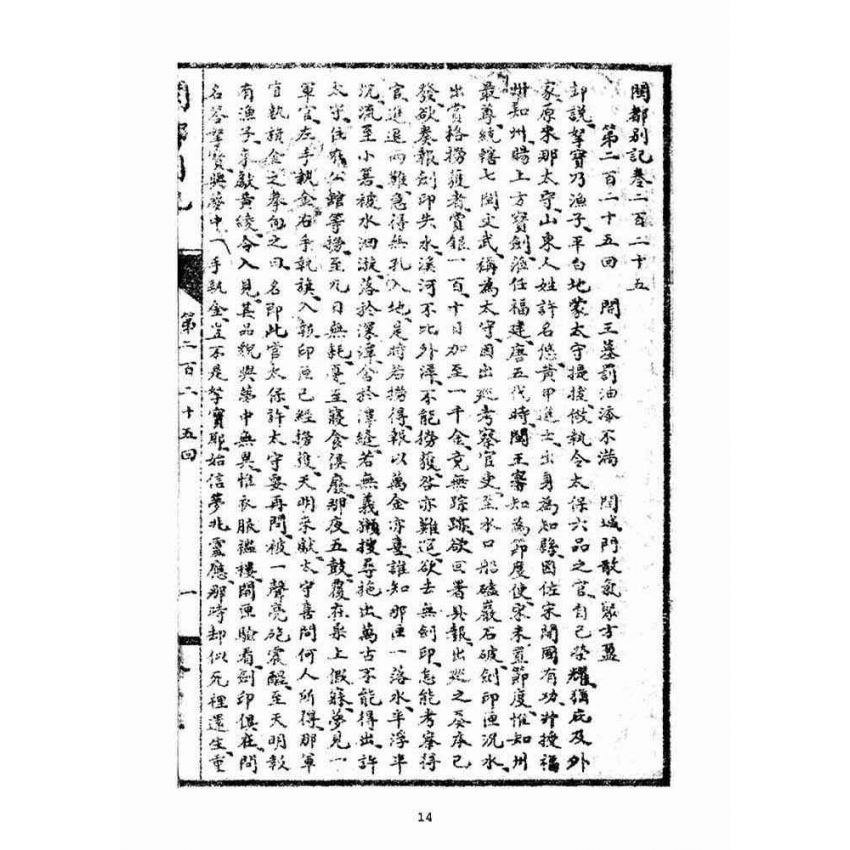 閩都別記卷二百二十五
第二百二十五回 閩王墓罰油添不滿 閩城門散氣聚方盈
却說拏寶乃漁子平白地蒙太守提拔做執令太保六品之官自己榮耀猶庇及外
家原來那太守山東人姓許名悠黃甲進士出身為知縣因佐宋開國有功陞授福
州知州賜上方寶劍蒞任福建唐五代時閩王審知為節度使宋未置節度惟知州
最尊統轄七閩文武稱為太守因出巡考察官吏至水口船磕巖石破劍印匣沉水
出賞格撈獲者賞銀一百十日加至一千金竟無踪跡欲回署具報出巡之奏本已
發欲奏報劍印失水溪河不比外洋不能撈獲咎亦難逭欲去無劍印怎能考察得
官進退兩難急得無孔入地是時若撈得報以萬金亦喜誰知那匣一落水半浮半
沉流至小箬被水泅漩落於深潭含於潭縫若無義獺搜尋拖出萬古不能得出許
太守住在公館等撈至九日無耗憂至寢食俱廢那夜五鼓覆在桌上假寐夢見一
軍官左手執金右手執旗入報印匣已經撈獲天明來獻太守喜問何人所得那軍
官執旗金之拳向之曰名即此當太保許太守要再問被一聲亮砲震醒至天明報
有漁子拏獻黃綾令入見其品貌與夢中無異惟衣服襤褸開匣驗看劍印俱在問
名答拏寶與夢中一手執金豈不是拏寶耶始信夢兆靈應那時却似死裡還生重
第二百二十五回
一
14